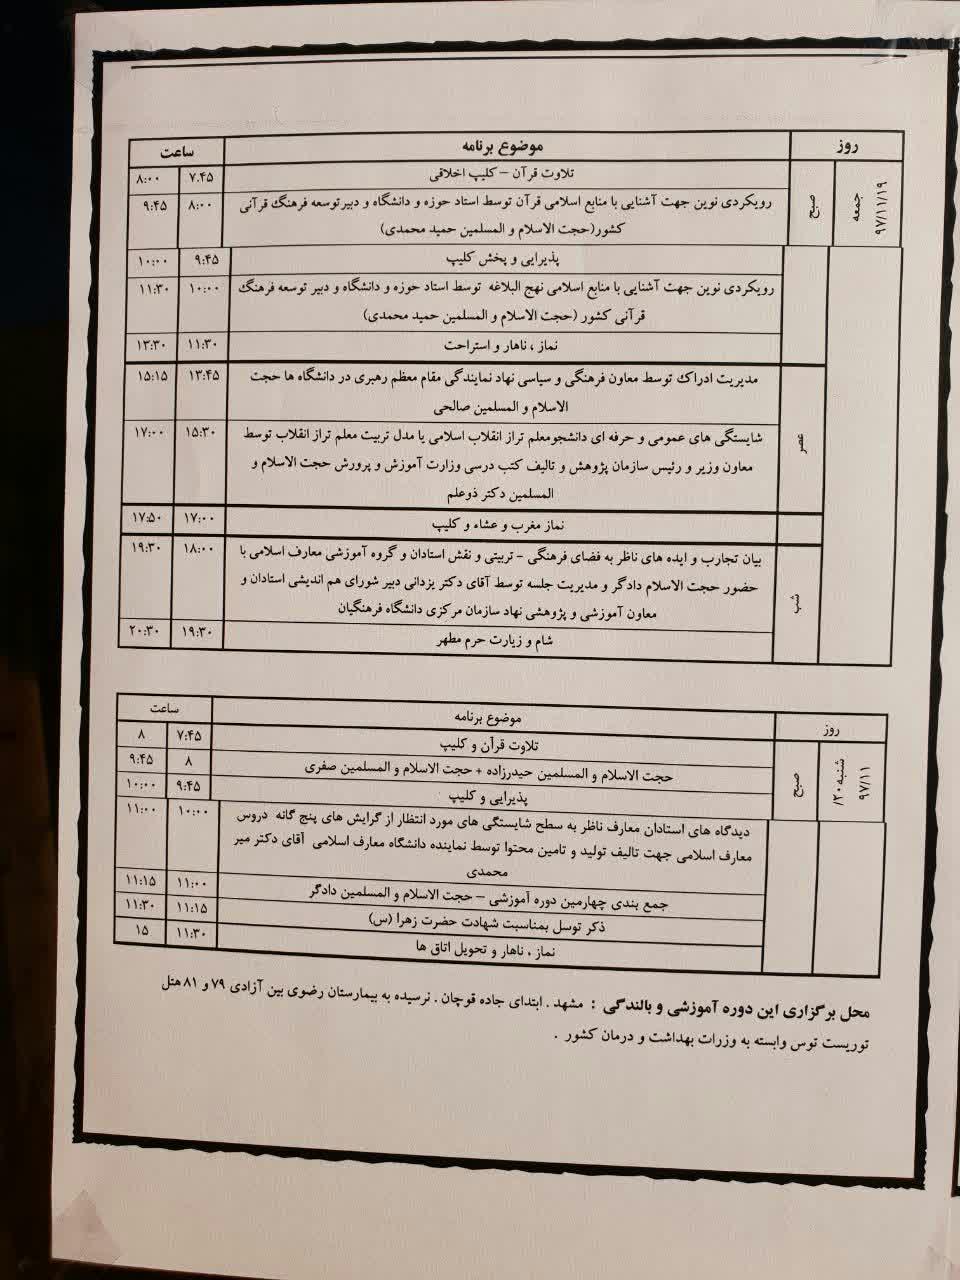 روز موضوع برنامه ساعت
جمعه ۹۷/۱۱/۱۹
صبح
تلاوت قرآن – کلیپ اخلاقی ۷.۴۵ ۸:۰۰
رویکردی نوین جهت آشنایی با منابع اسلامی قرآن توسط استاد حوزه و دانشگاه و دبیرتوسعه فرهنگ قرآنی ۸:۰۰ ۹:۴۵
کشور(حجت الاسلام و المسلمین حمید محمدی)
پذیرایی و پخش کلیپ ۹:۴۵ ۱۰:۰۰
رویکردی نوین جهت آشنایی با منابع اسلامی نهج البلاغه توسط استاد حوزه و دانشگاه و دبیر توسعه فرهنگ ۱۰:۰۰ ۱۱:۳۰
قرآنی کشور (حجت الاسلام و المسلمین حمید محمدی)
نماز ، ناهار و استراحت ۱۱:۳۰ ۱۳:۳۰
عصر
مدیریت ادراک توسط معاون فرهنگی و سیاسی نهاد نمایندگی مقام معظم رهبری در دانشگاه ها حجت ۱۳:۴۵ ۱۵:۱۵
الاسلام و المسلمین صالحی
شایستگی های عمومی و حرفه ای دانشجومعلم تراز انقلاب اسلامی یا مدل تربیت معلم تراز انقلاب توسط ۱۵:۳۰ ۱۷:۰۰
معاون وزیر و رئیس سازمان پژوهش و تالیف کتب درسی وزارت آموزش و پرورش حجت الاسلام و
المسلمین دکتر ذوعلم
نماز مغرب و عشاء و کلیپ ۱۷:۰۰ ۱۷:۵۰
شب
بیان تجارب و ایده های ناظر به فضای فرهنگی – تربیتی و نقش استادان و گروه آموزشی معارف اسلامی با ۱۸:۰۰ ۱۹:۳۰
حضور حجت الاسلام دادگر و مدیریت جلسه توسط آقای دکتر یزدانی دبیر شورای هم اندیشی استادان و
معاون آموزشی و پژوهشی نهاد سازمان مرکزی دانشگاه فرهنگیان
شام و زیارت حرم مطهر ۱۹:۳۰ ۲۰:۳۰
روز موضوع برنامه ساعت
شنبه ۲۰/
۹۷/۱۱
صبح
تلاوت قرآن و کلیپ ۷:۴۵ ۸
حجت الاسلام و المسلمین حیدرزاده + حجت الاسلام و المسلمین صفری ۸ ۹:۴۵
پذیرایی و کلیپ ۹:۴۵ ۱۰:۰۰
دیدگاه های استادان معارف ناظر به سطح شایستگی های مورد انتظار از گرایش های پنج گانه دروس ۱۰:۰۰ ۱۱:۰۰
معارف اسلامی جهت تالیف تولید و تامین محتوا توسط نماینده دانشگاه معارف اسلامی آقای دکتر میر
محمدی
جمع بندی چهارمین دوره آموزشی – حجت الاسلام و المسلمین دادگر ۱۱:۰۰ ۱۱:۱۵
ذکر توسل بمناسبت شهادت حضرت زهرا (س) ۱۱:۱۵ ۱۱:۳۰
نماز ، ناهار و تحویل اتاق ها ۱۱:۳۰ ۱۵
محل برگزاری این دوره آموزشی و بالندگی : مشهد . ابتدای جاده قوچان . نرسیده به بیمارستان رضوی بین آزادی ۷۹ و ۸۱ هتل
توریست توس وابسته به وزرات بهداشت و درمان کشور .